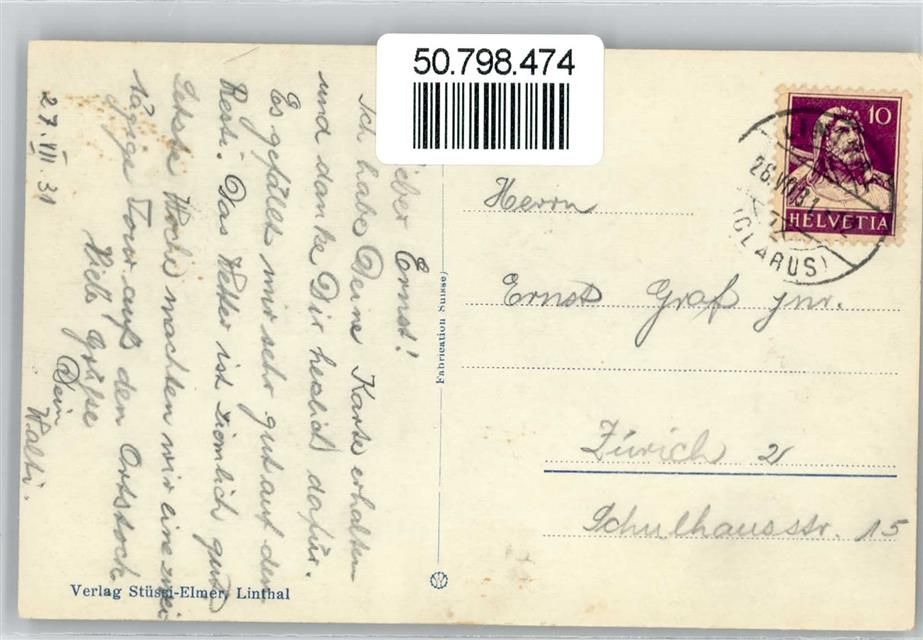 50.798.474
Lieber Ernst!
Ich habe Deine Karte erhalten
und danke Dir herzlich dafür.
Es gefällt mir sehr gut auf den
Resti. Das Wetter ist ziemlich gut.
Letzte Woche machten wir eine zwei
tägige Tour auf den Ortstock.
Viele Grüsse
Dein
Walti.
27. VII. 31
Verlag Stüssi-Elmer, Linthal
Fabrication Suisse
10
HELVETIA
26.VII.31
(GLARUS)
Herrn
Ernst Graf jnr.
Zürich 2
Schulhausstr. 15